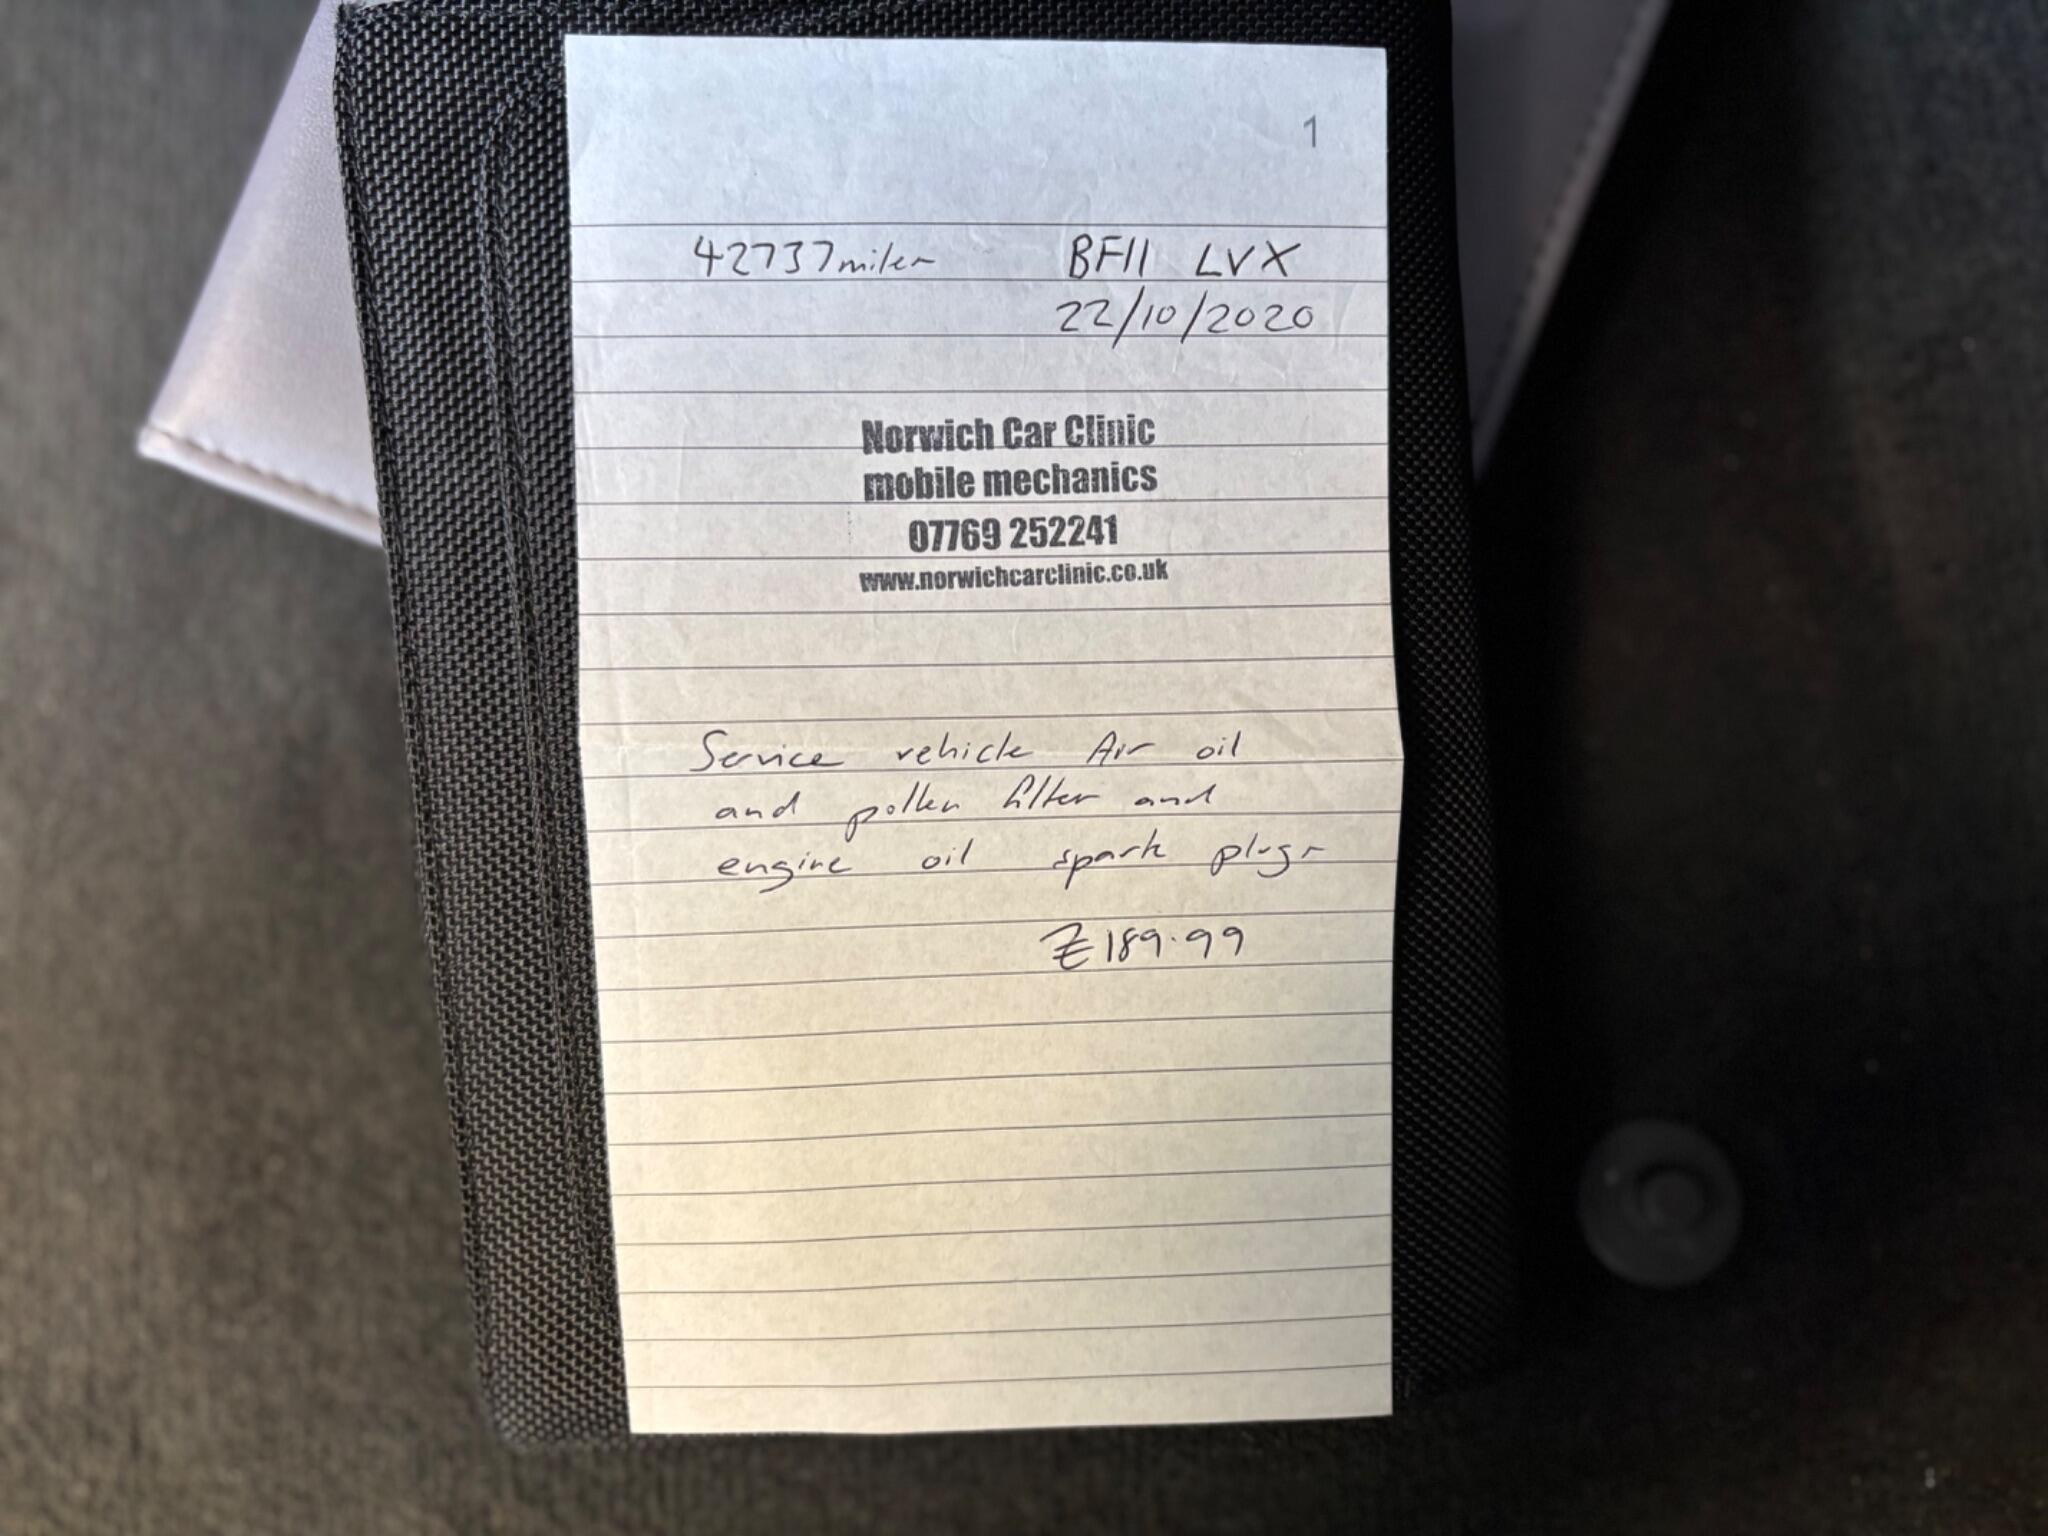 1
42737miles BF11 LVX
22/10/2020
Norwich Car Clinic
mobile mechanics
07769 252241
www.norwichcarclinic.co.uk
Service vehicle Air oil
and pollen filter and
engine oil spark plugs
£189.99